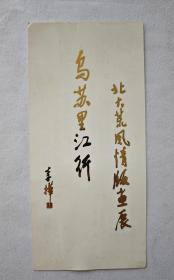 北大荒风情版画展
乌苏里江行